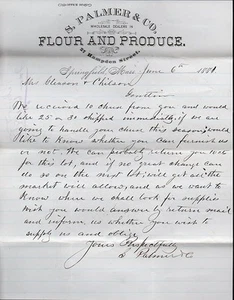 S. PALMER & CO.
WHOLESALE DEALERS IN
FLOUR AND PRODUCE,
Hampden Street
Springfield, Mass June 6th 1881
Mr Gleason Chilson
Gentlemen
We received 10 from you and would
like 25 or 30 shipped immediately, if we are
going to handle your this season, would
like to know whether you can furnish us
or not. We can probably return you
for this lot, and if no great change can
do so on the next lot, will get all the
market will allow, and as we want to
know where we shall look for supplies
wish you would answer by return mail
and inform us whether you wish to
supply us and oblige
Yours Respectfully
S Palmer & Co